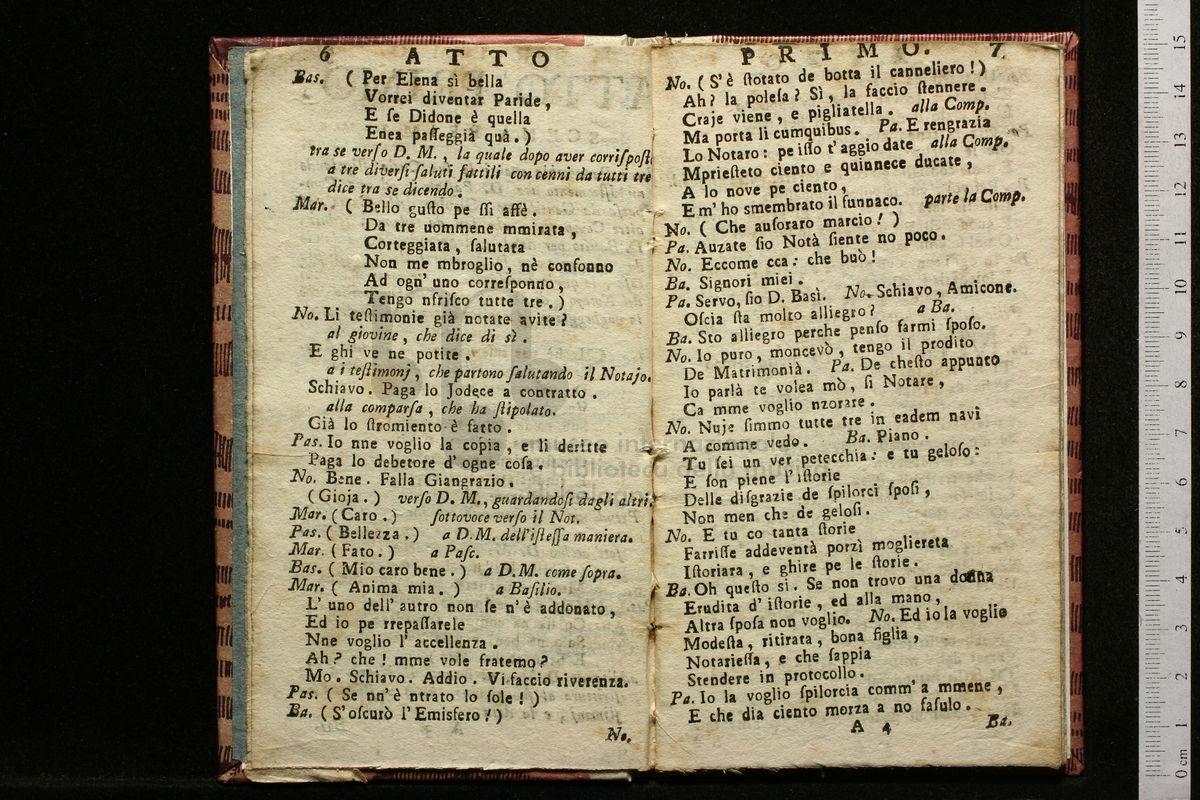 6 ATTO
Bas. ( Per Elena sì bella
Vorrei diventar Paride,
E ſe Didone è quella
Enea paſſeggià quà. )
tra se verſo D. M., la quale dopo aver corriſpoſt
a tre diverſi ſaluti fattili con cenni da tutti tre
dice tra se dicendo.
Mar. ( Bello guſto pe ſſi affè.
Da tre uommene mmirata,
Corteggiata, ſalutata
Non me mbroglio, nè conſonno
Ad ogn' uno correſponno,
Tengo nfriſco tutte tre. )
No. Li teſtimonie già notate avite?
al giovine, che dice di sì.
E ghi ve ne potite.
a i teſtimonj, che partono ſalutando il Notajo.
Schiavo. Paga lo Jodece a contratto.
alla comparſa, che ha ſtipolato.
Già lo ſtromiento è fatto.
Pas. Io nne voglio la copia, e li deritte
Paga lo debetore d' ogne coſa.
No. Bene. Falla Giangrazio.
(Gioja. ) verſo D. M., guardandoſi dagli altri.
Mar. ( Caro. ) ſottovoce verſo il Not.
Pas. ( Bellezza. ) a D.M. dell'iſteſſa maniera.
Mar. ( Fato. ) a Paſc.
Bas. ( Mio caro bene. ) a D.M. come ſopra.
Mar. ( Anima mia. ) a Baſilio.
L' uno dell' autro non ſe n'è addonato,
Ed io pe rrepaſſarele
Nne voglio l' accellenza.
Ah? che! mme vole fratemo?
Mo. Schiavo. Addio. Vi faccio riverenza.
Pas. ( Se nn' è ntrato lo ſole! )
Ba. ( S' oſcurò l' Emisfero! )
No.
PRIMO. 7
No. ( S' è ſtotato de botta il canneliero! )
Ah? la poleſa? Sì, la faccio ſtennere.
Craje viene, e pigliatella. alla Comp.
Ma porta li cumquibus. Pa. E rengrazia
Lo Notaro: pe iſſo t' aggio date alla Comp.
Mprieſteto ciento e quinnece ducate,
A lo nove pe ciento,
E m' ho smembrato il ſunnaco. parte la Comp.
No. ( Che auſoraro marcio! )
Pa. Auzate ſio Notà ſiente no poco.
No. Eccome cca: che buò!
Ba. Signori miei.
Pa. Servo, ſio D. Basì. No. Schiavo, Amicone.
Oſcia ſta molto alliegro? a Ba.
Ba. Sto alliegro perche penſo farmi ſpoſo.
No. Io puro, moncevò, tengo il prodito
De Matrimonià. Pa. De cheſto appunto
Io parlà te volea mò, ſi Notare,
Ca mme voglio nzorare.
No. Nuje ſimmo tutte tre in eadem navi
A comme vedo. Ba. Piano.
Tu ſei un ver petecchia: e tu geloſo:
E ſon piene l' iſtorie
Delle diſgrazie de ſpilorci ſpoſi,
Non men che de geloſi.
No. E tu co tanta ſtorie
Farriſſe addeventà porzì mogliereta
Iſtoriara, e ghire pe le ſtorie.
Ba. Oh queſto si. Se non trovo una donna
Erudita d' iſtorie, ed alla mano,
Altra ſpoſa non voglio. No. Ed io la voglio
Modeſta, ritirata, bona figlia,
Notarieſſa, e che ſappia
Stendere in protocollo.
Pa. Io la voglio ſpilorcia comm' a mmene,
E che dia ciento morza a no faſulo.
A 4 Ba.